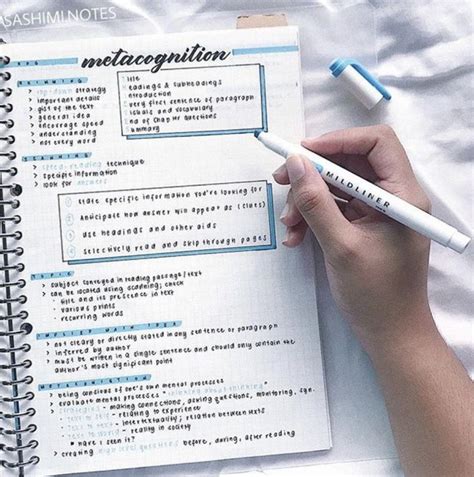 ASASHIMI.NOTES
metacognition
SKIMMING
> top-down strategy
> important details
> gist of the text
> general idea
> encourage speed
> understanding
> not every word
Title
Headings & subheadings
Introduction
Every first sentence of paragraph
Visuals and vocabulary
End of chap nr questions
Summary
SCANNING
> speed-reading technique
> specific information
> look for answers
1 State specific information you're looking for
2 Anticipate how answer will appear as (clues)
3 Use headings and other aids
4 Selectively read and skip through pages
TOPIC
> subject conveyed in reading passage/text
> can be located using scanning; check
- title and its presence in text
- various points
- recurring words
IMPLIED MAIN IDEA
> not clearly or directly stated in any sentence or paragraph
> inferred by author
> must be written in a single sentence and should only contain the
author's most significant point
METACOGNITION
> being conscious of one's own mental processes
> evaluate mental processes "thinking about thinking"
> strategies - making connections, asking questions, monitoring, syn.
- text to self - relating to experience
- text to text - intertextuality; relation between texts
- text to world - reality in society
* Have I seen it?
> creating high level questions before, during, after reading
MILDLINER